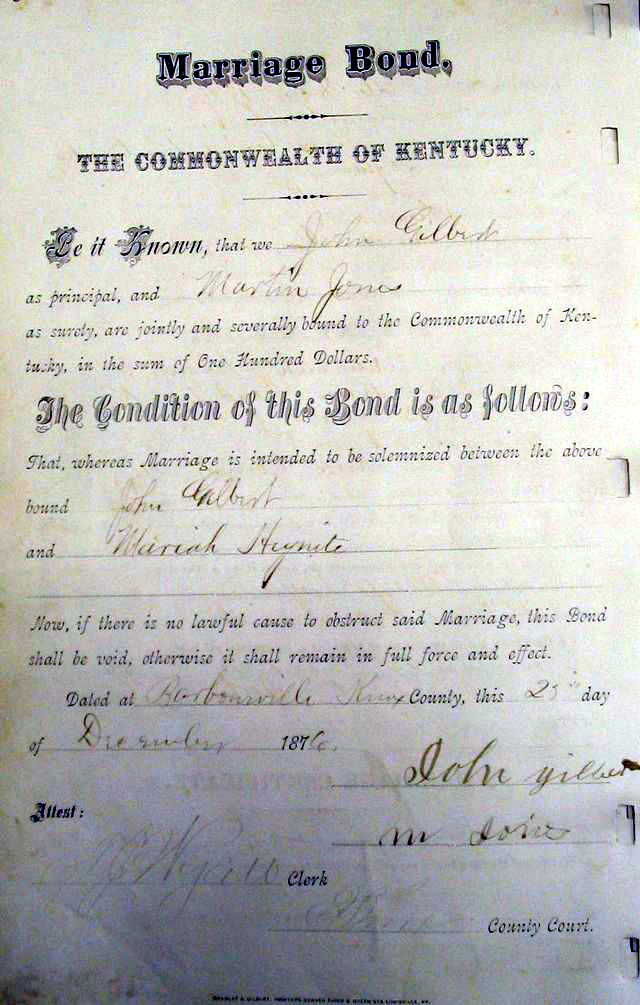 Marriage Bond.
THE COMMONWEALTH OF KENTUCKY.
Be it Known, that we John Gilbert
as principal, and Martin Jones
as surety, are jointly and severally bound to the Commonwealth of Ken-
tucky, in the sum of One Hundred Dollars.
The Condition of this Bond is as follows:
That, whereas Marriage is intended to be solemnized between the above
bound John Gilbert
and Mariah
Now, if there is no lawful cause to obstruct said Marriage, this Bond
shall be void, otherwise it shall remain in full force and effect.
Dated at Barbourville Knox County, this 25th day
of December 1876.
John gilbert
Attest:
m Jones
Clerk
County Court.